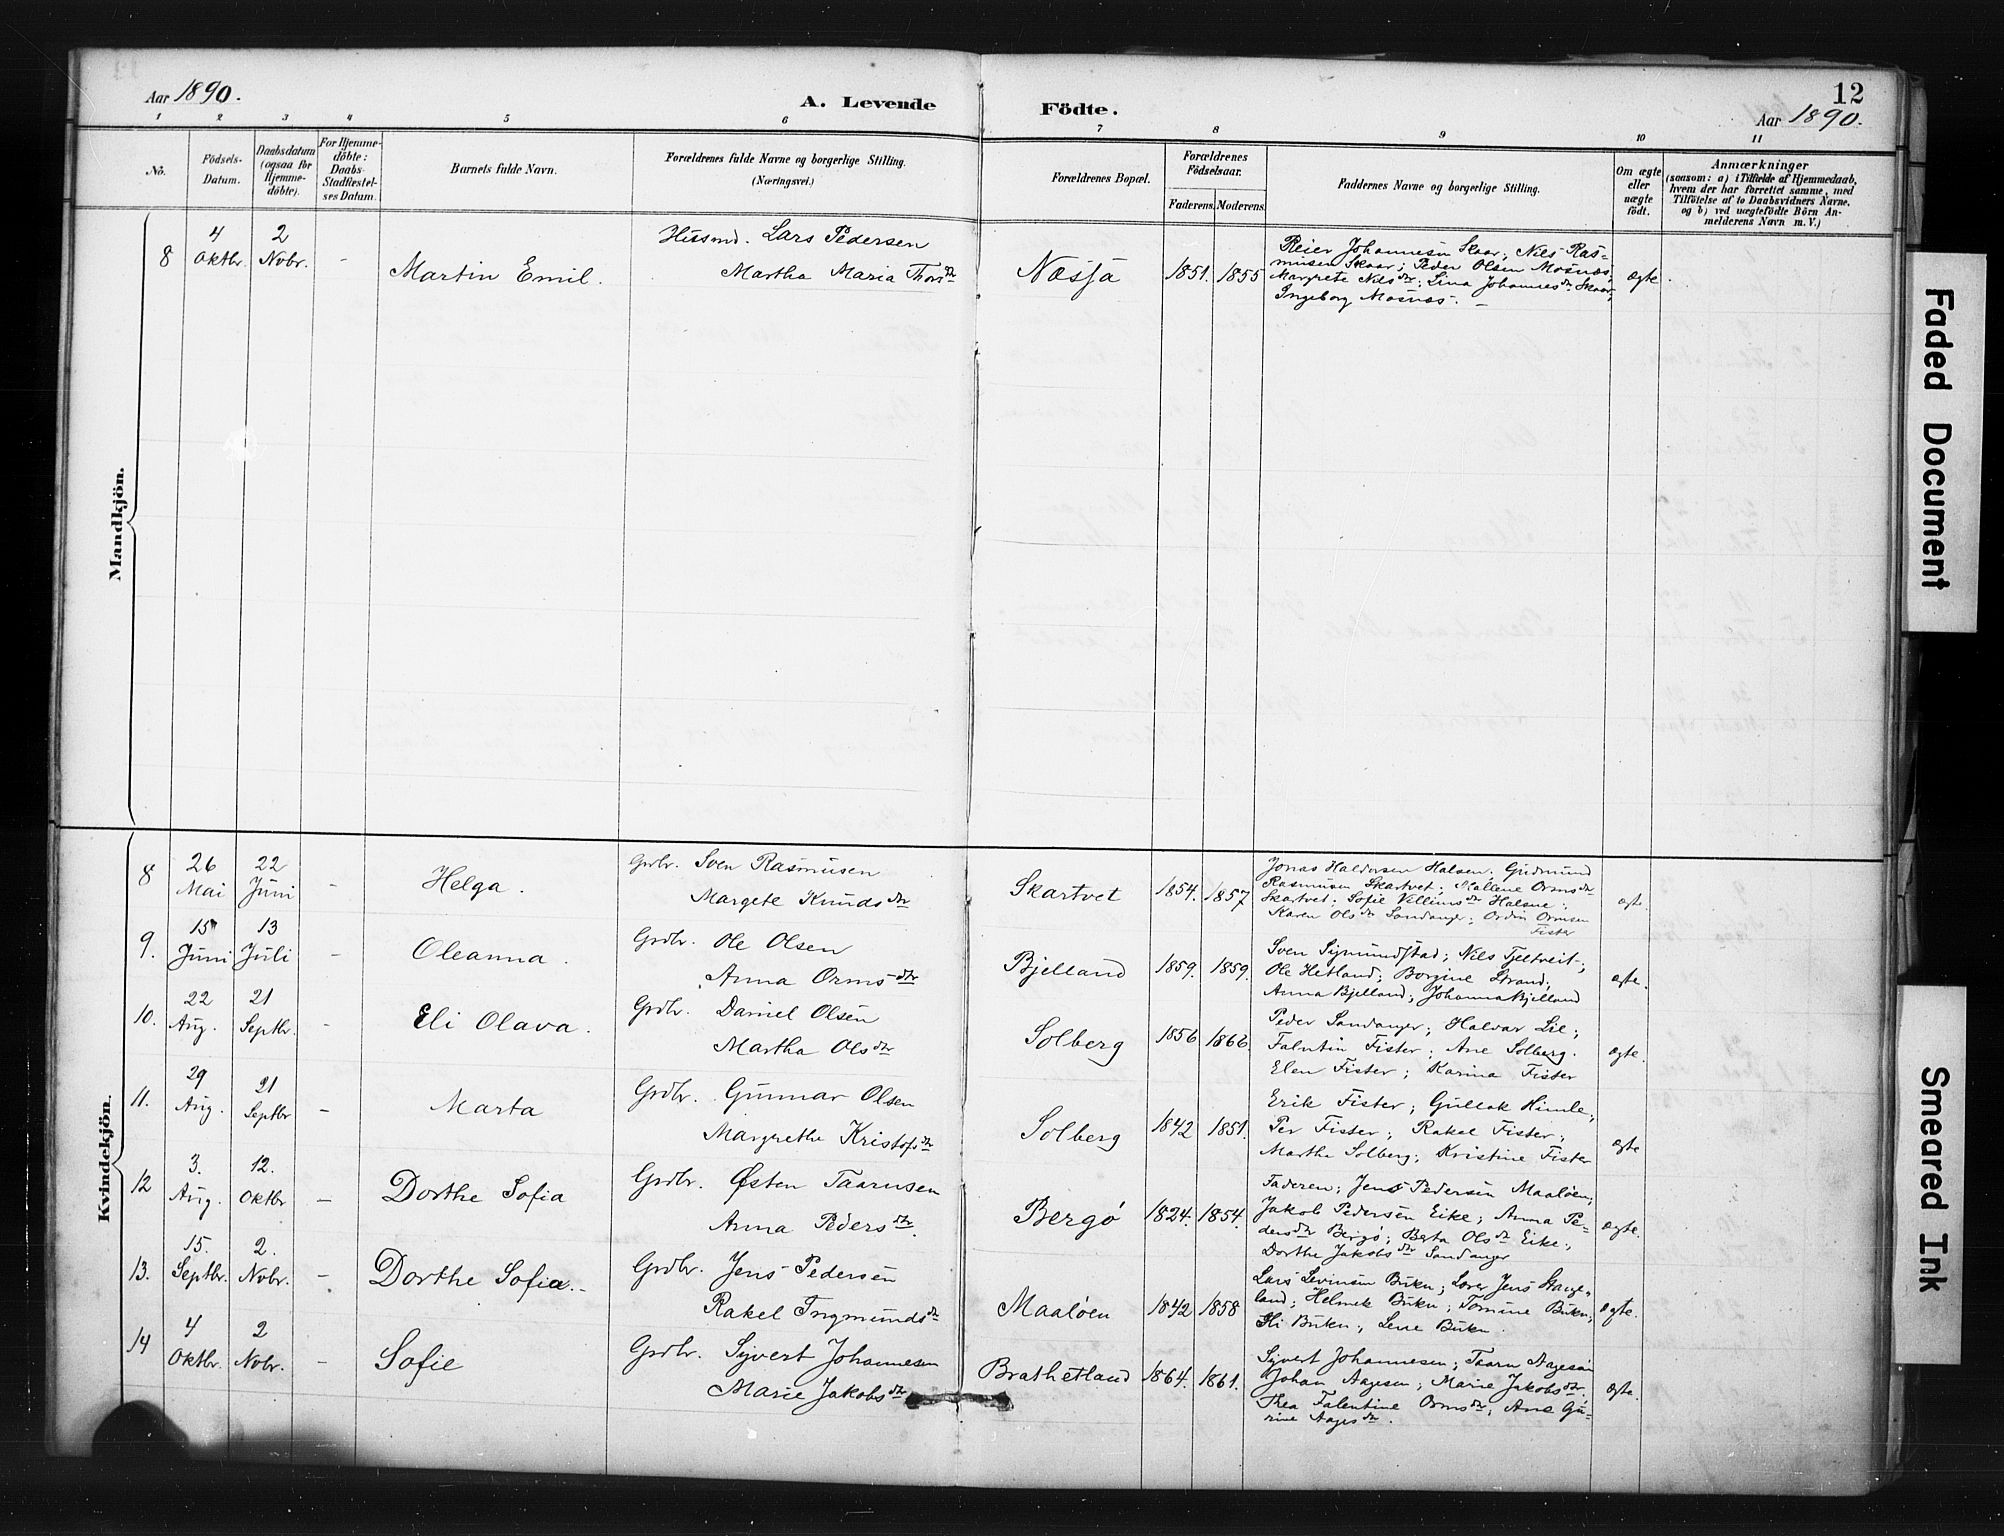 12
Aar 1890.
A. Levende Födte.
Aar 1890.
1 2 3 4 5 6 7 8 9 10 11
No.
Födsels-Datum.
Daabsdatum (ogsaa for Hjemme-döbte).
For Hjemme-döbte: Daabs-Stadfæstel-ses Datum.
Barnets fulde Navn.
Forældrenes fulde Navne og borgerlige Stilling.
(Næringsvei.)
Forældrenes Bopæl.
Forældrenes Födselsaar.
Faderens. Moderens.
Faddernes Navne og borgerlige Stilling.
Om ægte eller uægte födt.
Anmærkninger
(saasom: a) i Tilfælde af Hjemmedaab,
hvem der har forrettet samme, med
Tilföielse af to Daabsvidners Navne,
og b) ved uægtefödte Börn An-
melderens Navn m. V.)
Mandkjön.
8 4 Oktbr. 2 Novbr. - Martin Emil.
Husmd. Lars Pedersen
Martha Maria Thorsdtr
Næssa 1851. 1855
Reier Johannesen Skaar; Nils Ras-
musen Skaar; Peder Olsen Mosnæs;
Margrete Nilsdtr; Lina Johannesdtr Skaar;
Ingeborg Mosnæs. -
ægte.
Kvindekjön.
8 26 Mai 22 Juni - Helga.
Grdbr. Sven Rasmusen
Margete Knudsdtr
Skartvet 1854. 1857
Jonas Haldorsen Halsen; Gudmund
Rasmusen Skartvet; Mallene Ormsdtr
Skartvet; Sofie Villumsdtr Halsne;
Karen Olsdtr Sandanger; Ordin Ormsen
Fister
ægte.
9. 15 Juni 13 Juli - Oleanna.
Grdbr. Ole Olsen
Anna Ormsdtr
Bjelland 1859. 1859.
Sven Sigmundstad; Nils Tjeltveit;
Ole Hetland; Borgine Strand;
Anna Bjelland; Johanna Bjelland
ægte.
10. 22 Aug. 21 Septbr. - Eli Olava.
Grdbr. Daniel Olsen
Martha Olsdtr
Solberg 1856 1866.
Peder Sandanger; Halvar Lie;
Falentin Fister; Ane Solberg.
Elen Fister; Karina Fister
ægte.
11. 29 Aug. 21 Septbr - Marta
Grdbr. Gunnar Olsen
Margrethe Kristofsdtr
Solberg 1842 1851.
Erik Fister; Gullak Himle;
Per Fister; Rakel Fister;
Martha Solberg; Kristine Fister
ægte
12 3. Aug. 12. Oktbr - Dorthe Sofia
Grdbr. Østen Taarnsen
Anna Pedersdtr.
Bergö 1824. 1854.
Faderen; Jens Pedersen Maalöen;
Jakob Pedersen Eike; Anna Pe-
dersdtr Bergö; Berta Olsdtr Eike;
Dorthe Jakobsdtr Sandanger
ægte.
13. 15. Septbr. 2. Novbr. - Dorthe Sofia.-
Grdbr. Jens Pedersen
Rakel Ingmundsdtr
Maalöen 1842 1858
Lars Levinsen Buken; Lærer Jens Stange-
land; Helmek Buken; Tomine Buken;
Eli Buken; Lene Buken.
ægte.
14 4 Oktbr. 2 Novbr. - Sofie
Grdbr. Sjvert Johannesen
Marie Jakobsdtr
Brathetland 1864. 1861.
Sjvert Johannesen; Taarn Aagesøn
Johan Aagesen; Marie Jakobsdtr.
Thea Falentine Ormsdtr; Ane Gu-
rine Aagesdtr.
ægte.
Faded Document
Smeared Ink